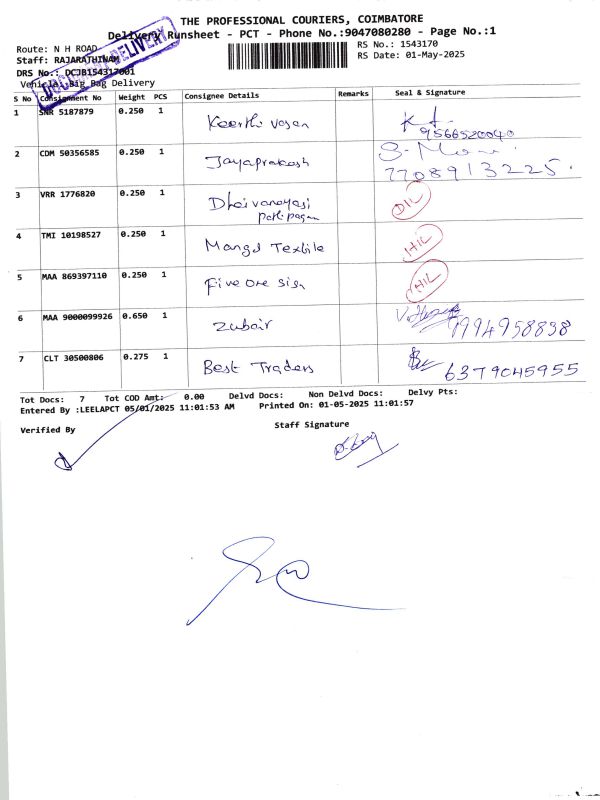 THE PROFESSIONAL COURIERS, COIMBATORE
Delivery Runsheet - PCT - Phone No.:9047080280 - Page No.:1
Route: N H ROAD
RS No.: 1543170
Staff: RAJARATHINAM
RS Date: 01-May-2025
DRS No.: DCJB154317001
Vehicle: Big Bag Delivery
DELIVERY
S No Consignment No Weight PCS Consignee Details Remarks Seal & Signature
1 SNR 5187879 0.250 1 Keerthi vasan 9566520040
2 CDM 50356585 0.250 1 Jayaprakash 7708913225.
3 VRR 1776820 0.250 1 Dheivanayagi DIL
pathipagam
4 TMI 10198527 0.250 1 Mangal Textile HIL
5 MAA 869397110 0.250 1 Five one sign HIL
6 MAA 9000099926 0.650 1 Zubair 9994958838
7 CLT 30500806 0.275 1 Best Traders 6379045955
Tot Docs: 7 Tot COD Amt: 0.00 Delvd Docs: Non Delvd Docs: Delvy Pts:
Entered By :LEELAPCT 05/01/2025 11:01:53 AM Printed On: 01-05-2025 11:01:57
Verified By Staff Signature